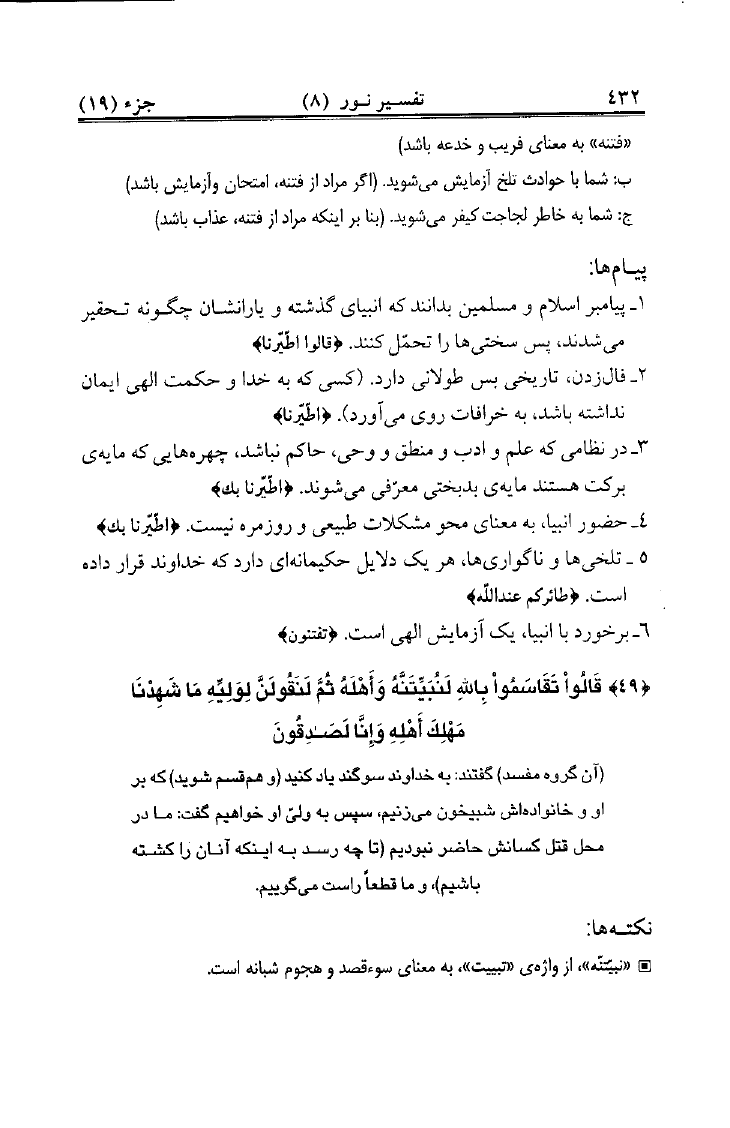 ٤٣٢ تفسیر نور (٨) جزء (١٩)
«فتنه» به معنای فریب و خدعه باشد)
ب: شما با حوادث تلخ آزمایش می‌شوید. (اگر مراد از فتنه، امتحان وآزمایش باشد)
ج: شما به خاطر لجاجت کیفر می‌شوید. (بنا بر اینکه مراد از فتنه، عذاب باشد)
پیام‌ها:
١ـ پیامبر اسلام و مسلمین بدانند که انبیای گذشته و یارانشان چگونه تحقیر
می‌شدند، پس سختی‌ها را تحمّل کنند. ﴿قالوا اطّیّرنا﴾
٢ـ فال‌زدن، تاریخی بس طولانی دارد. (کسی که به خدا و حکمت الهی ایمان
نداشته باشد، به خرافات روی می‌آورد). ﴿اطّیّرنا﴾
٣ـ در نظامی که علم و ادب و منطق و وحی، حاکم نباشد، چهره‌هایی که مایه‌ی
برکت هستند مایه‌ی بدبختی معرّفی می‌شوند. ﴿اطّیّرنا بك﴾
٤ـ حضور انبیا، به معنای محو مشکلات طبیعی و روزمره نیست. ﴿اطّیّرنا بك﴾
٥ ـ تلخی‌ها و ناگواری‌ها، هر یک دلایل حکیمانه‌ای دارد که خداوند قرار داده
است. ﴿طائرکم عنداللّه﴾
٦ـ برخورد با انبیا، یک آزمایش الهی است. ﴿تفتنون﴾
﴿٤٩﴾ قَالُواْ تَقَاسَمُواْ بِاللهِ لَنُبَيِّتَنَّهُ وَأَهْلَهُ ثُمَّ لَنَقُولَنَّ لِوَلِيِّهِ مَا شَهِدْنَا
مَهْلِكَ أَهْلِهِ وَإِنَّا لَصَـٰدِقُونَ
(آن گروه مفسد) گفتند: به خداوند سوگند یاد کنید (و هم‌قسم شوید) که بر
او و خانواده‌اش شبیخون می‌زنیم، سپس به ولیّ او خواهیم گفت: ما در
محل قتل کسانش حاضر نبودیم (تا چه رسد به اینکه آنان را کشته
باشیم)، و ما قطعاً راست می‌گوییم.
نکته‌ها:
▣ «نبیّتنّه»، از واژه‌ی «تبییت»، به معنای سوءقصد و هجوم شبانه است.